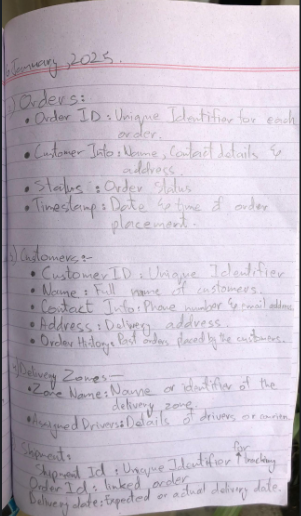 January, 2025.
1) Orders:
• Order ID : Unique Identifier for each
order.
• Customer Info : Name, Contact details &
address.
• Status : Order Status
• Timestamp : Date & time of order
placement.
2) Customers :-
• Customer ID : Unique Identifier
• Name : Full name of customers.
• Contact Info : Phone number & email address
• Address : Delivery address.
• Order History : Past orders placed by the customers.
3) Delivery Zones —
• Zone Name : Name or identifier of the
delivery zone.
• Assigned Drivers : Details of drivers or
Shipments
Shipment Id : Unique Identifier for tracking
Order Id : linked order
Delivery date : Expected or actual delivery date.